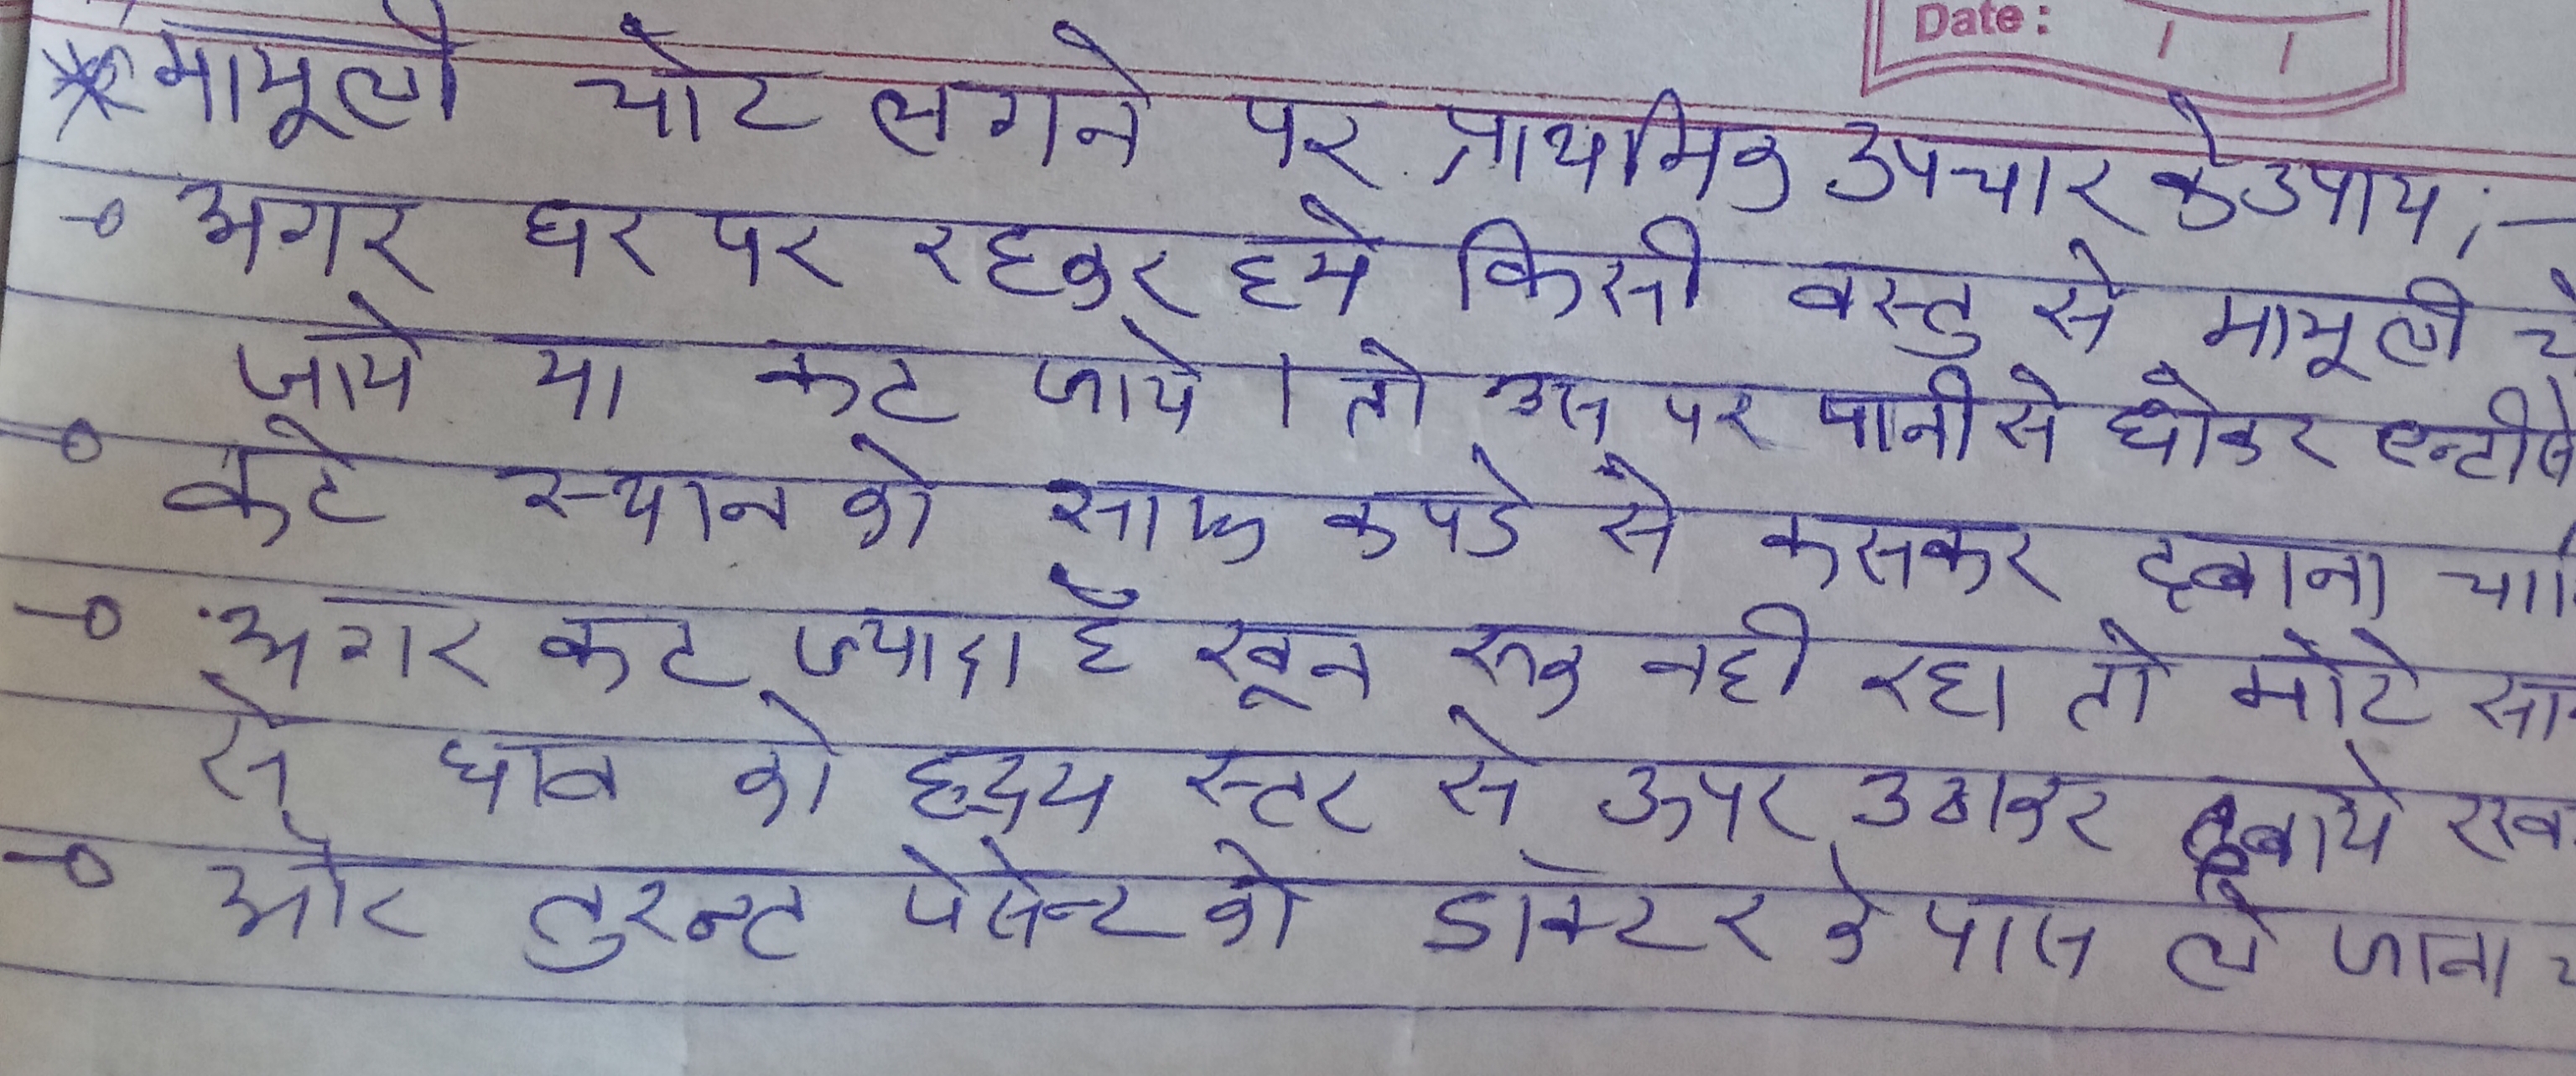 Date: / /
* मामूली चोट लगने पर प्राथमिक उपचार के उपाय :-
→ अगर घर पर रहकर हमे किसी वस्तु से मामूली
जाये या कट जाये । तो उस पर पानी से धोकर
→ कटे स्थान को साफ कपडे से कसकर दबाना
→ अगर कट ज्यादा है खून रूक नही रहा तो मोटे
से घाव को हृदय स्तर से ऊपर उठाकर दबाये
→ और तुरन्त पेसेन्ट को डॉक्टर के पास ले जाना